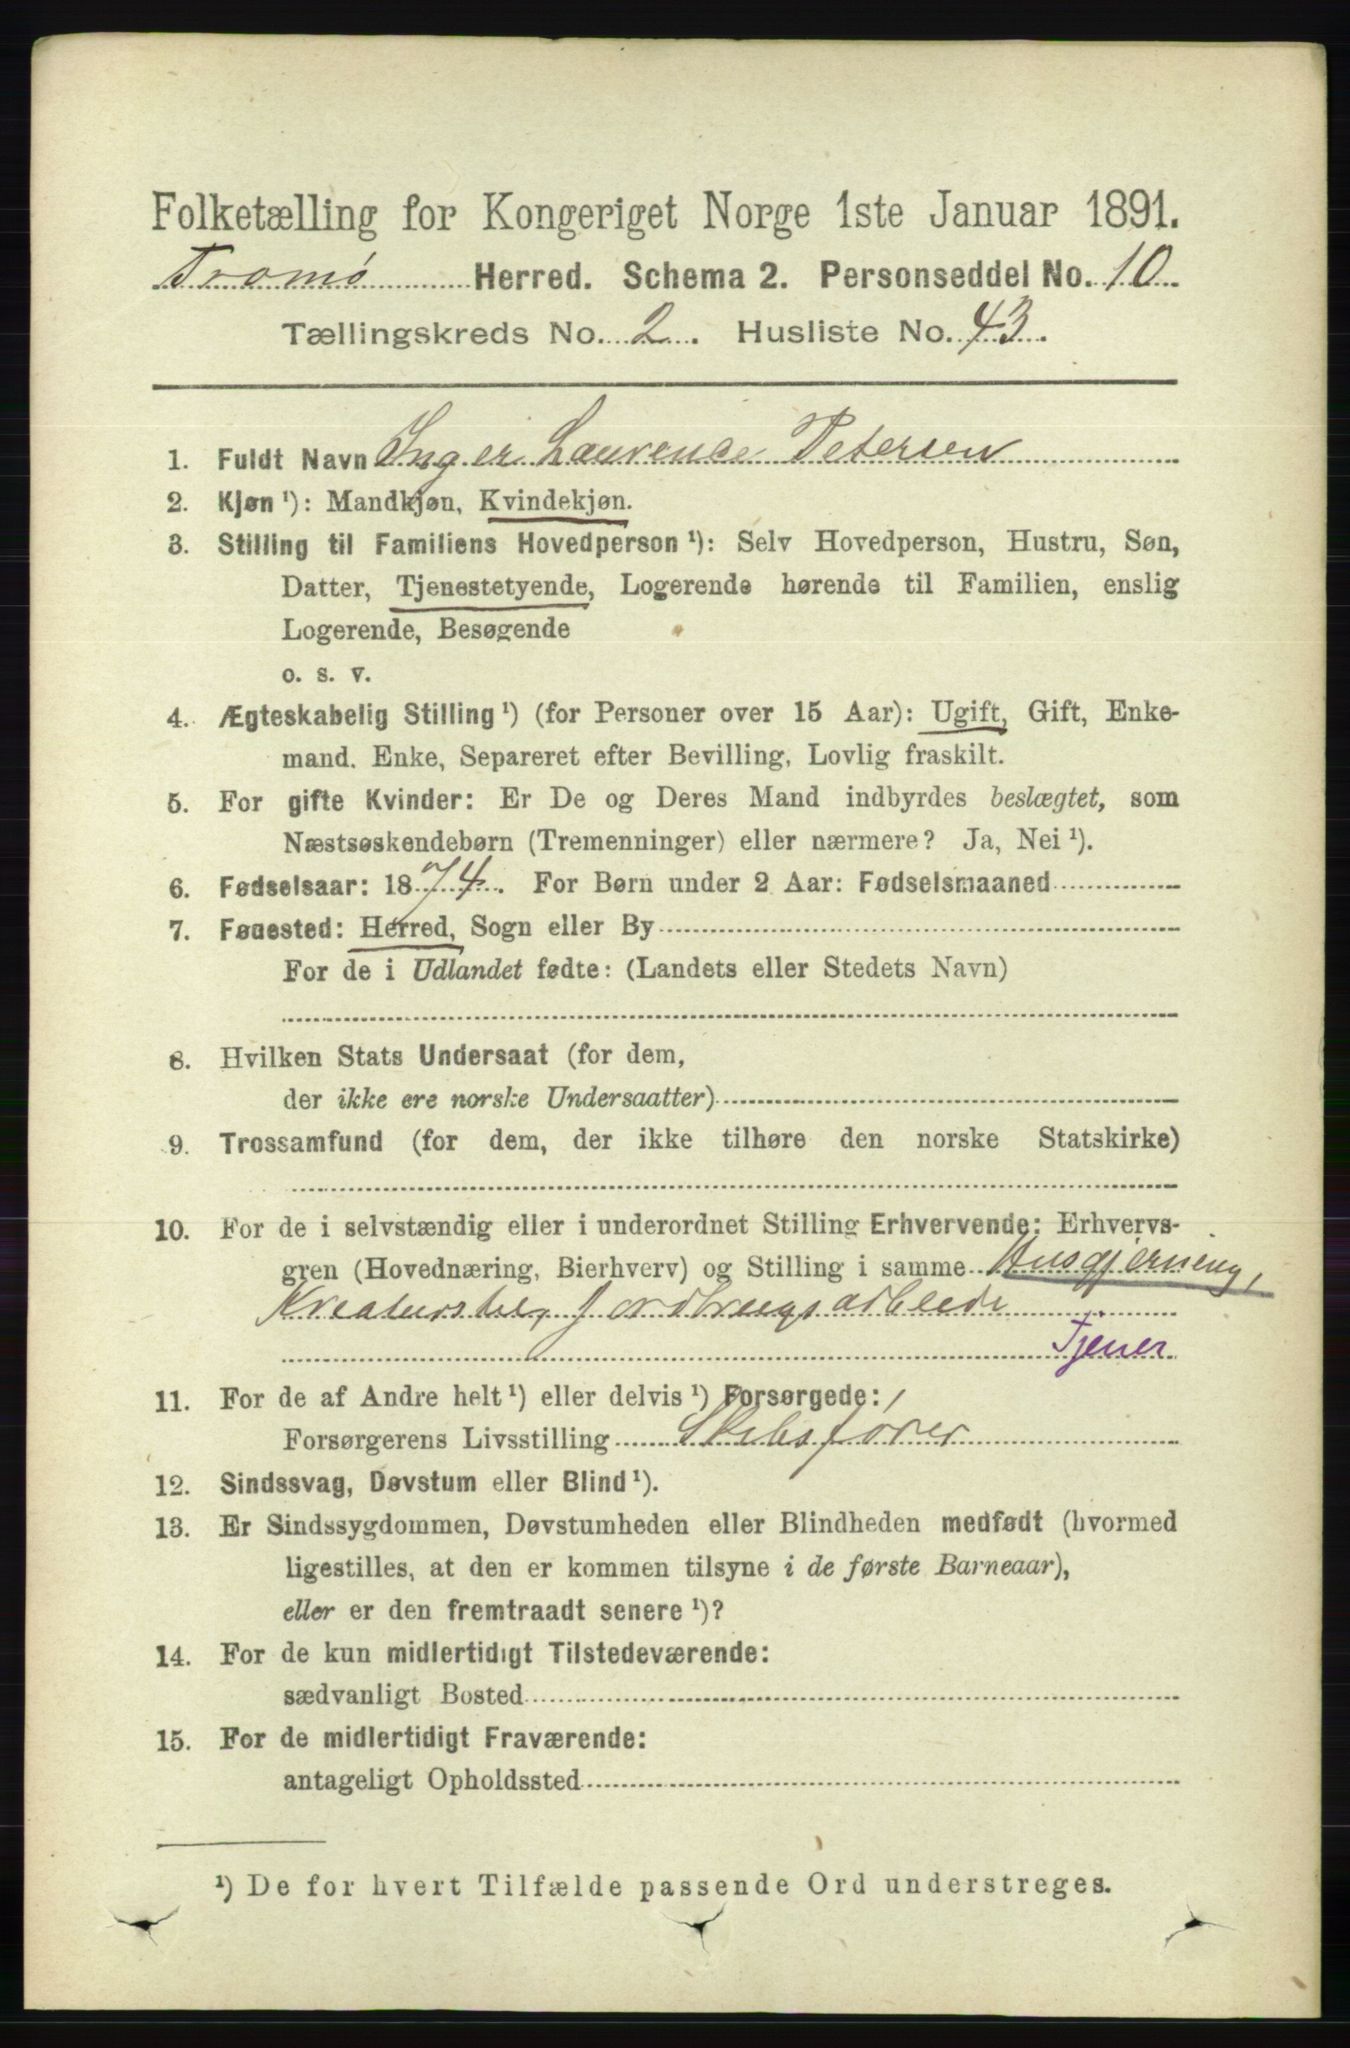 Folketælling for Kongeriget Norge 1ste Januar 1891.
Tromø Herred. Schema 2. Personseddel No. 10
Tællingskreds No. 2. Husliste No. 43.
1. Fuldt Navn Inger Laurence Petersen
2. Kjøn ¹): Mandkjøn, Kvindekjøn.
3. Stilling til Familiens Hovedperson ¹): Selv Hovedperson, Hustru, Søn,
Datter, Tjenestetyende, Logerende hørende til Familien, enslig
Logerende, Besøgende
o. s. v.
4. Ægteskabelig Stilling ¹) (for Personer over 15 Aar): Ugift, Gift, Enke-
mand, Enke, Separeret efter Bevilling, Lovlig fraskilt.
5. For gifte Kvinder: Er De og Deres Mand indbyrdes beslægtet, som
Næstsøskendebørn (Tremenninger) eller nærmere? Ja, Nei ¹).
6. Fødselsaar: 1874. For Børn under 2 Aar: Fødselsmaaned
7. Fødested: Herred, Sogn eller By
For de i Udlandet fødte: (Landets eller Stedets Navn)
8. Hvilken Stats Undersaat (for dem,
der ikke ere norske Undersaatter)
9. Trossamfund (for dem, der ikke tilhøre den norske Statskirke)
10. For de i selvstændig eller i underordnet Stilling Erhvervende: Erhvervs-
gren (Hovednæring, Bierhverv) og Stilling i samme Husgjerning,
Kreaturstel, Jordbrugsarbeide
Tjener
11. For de af Andre helt ¹) eller delvis ¹) Forsørgede:
Forsørgerens Livsstilling Skibsfører
12. Sindssvag, Døvstum eller Blind ¹).
13. Er Sindssygdommen, Døvstumheden eller Blindheden medfødt (hvormed
ligestilles, at den er kommen tilsyne i de første Barneaar),
eller er den fremtraadt senere ¹)?
14. For de kun midlertidigt Tilstedeværende:
sædvanligt Bosted
15. For de midlertidigt Fraværende:
antageligt Opholdssted
¹) De for hvert Tilfælde passende Ord understreges.